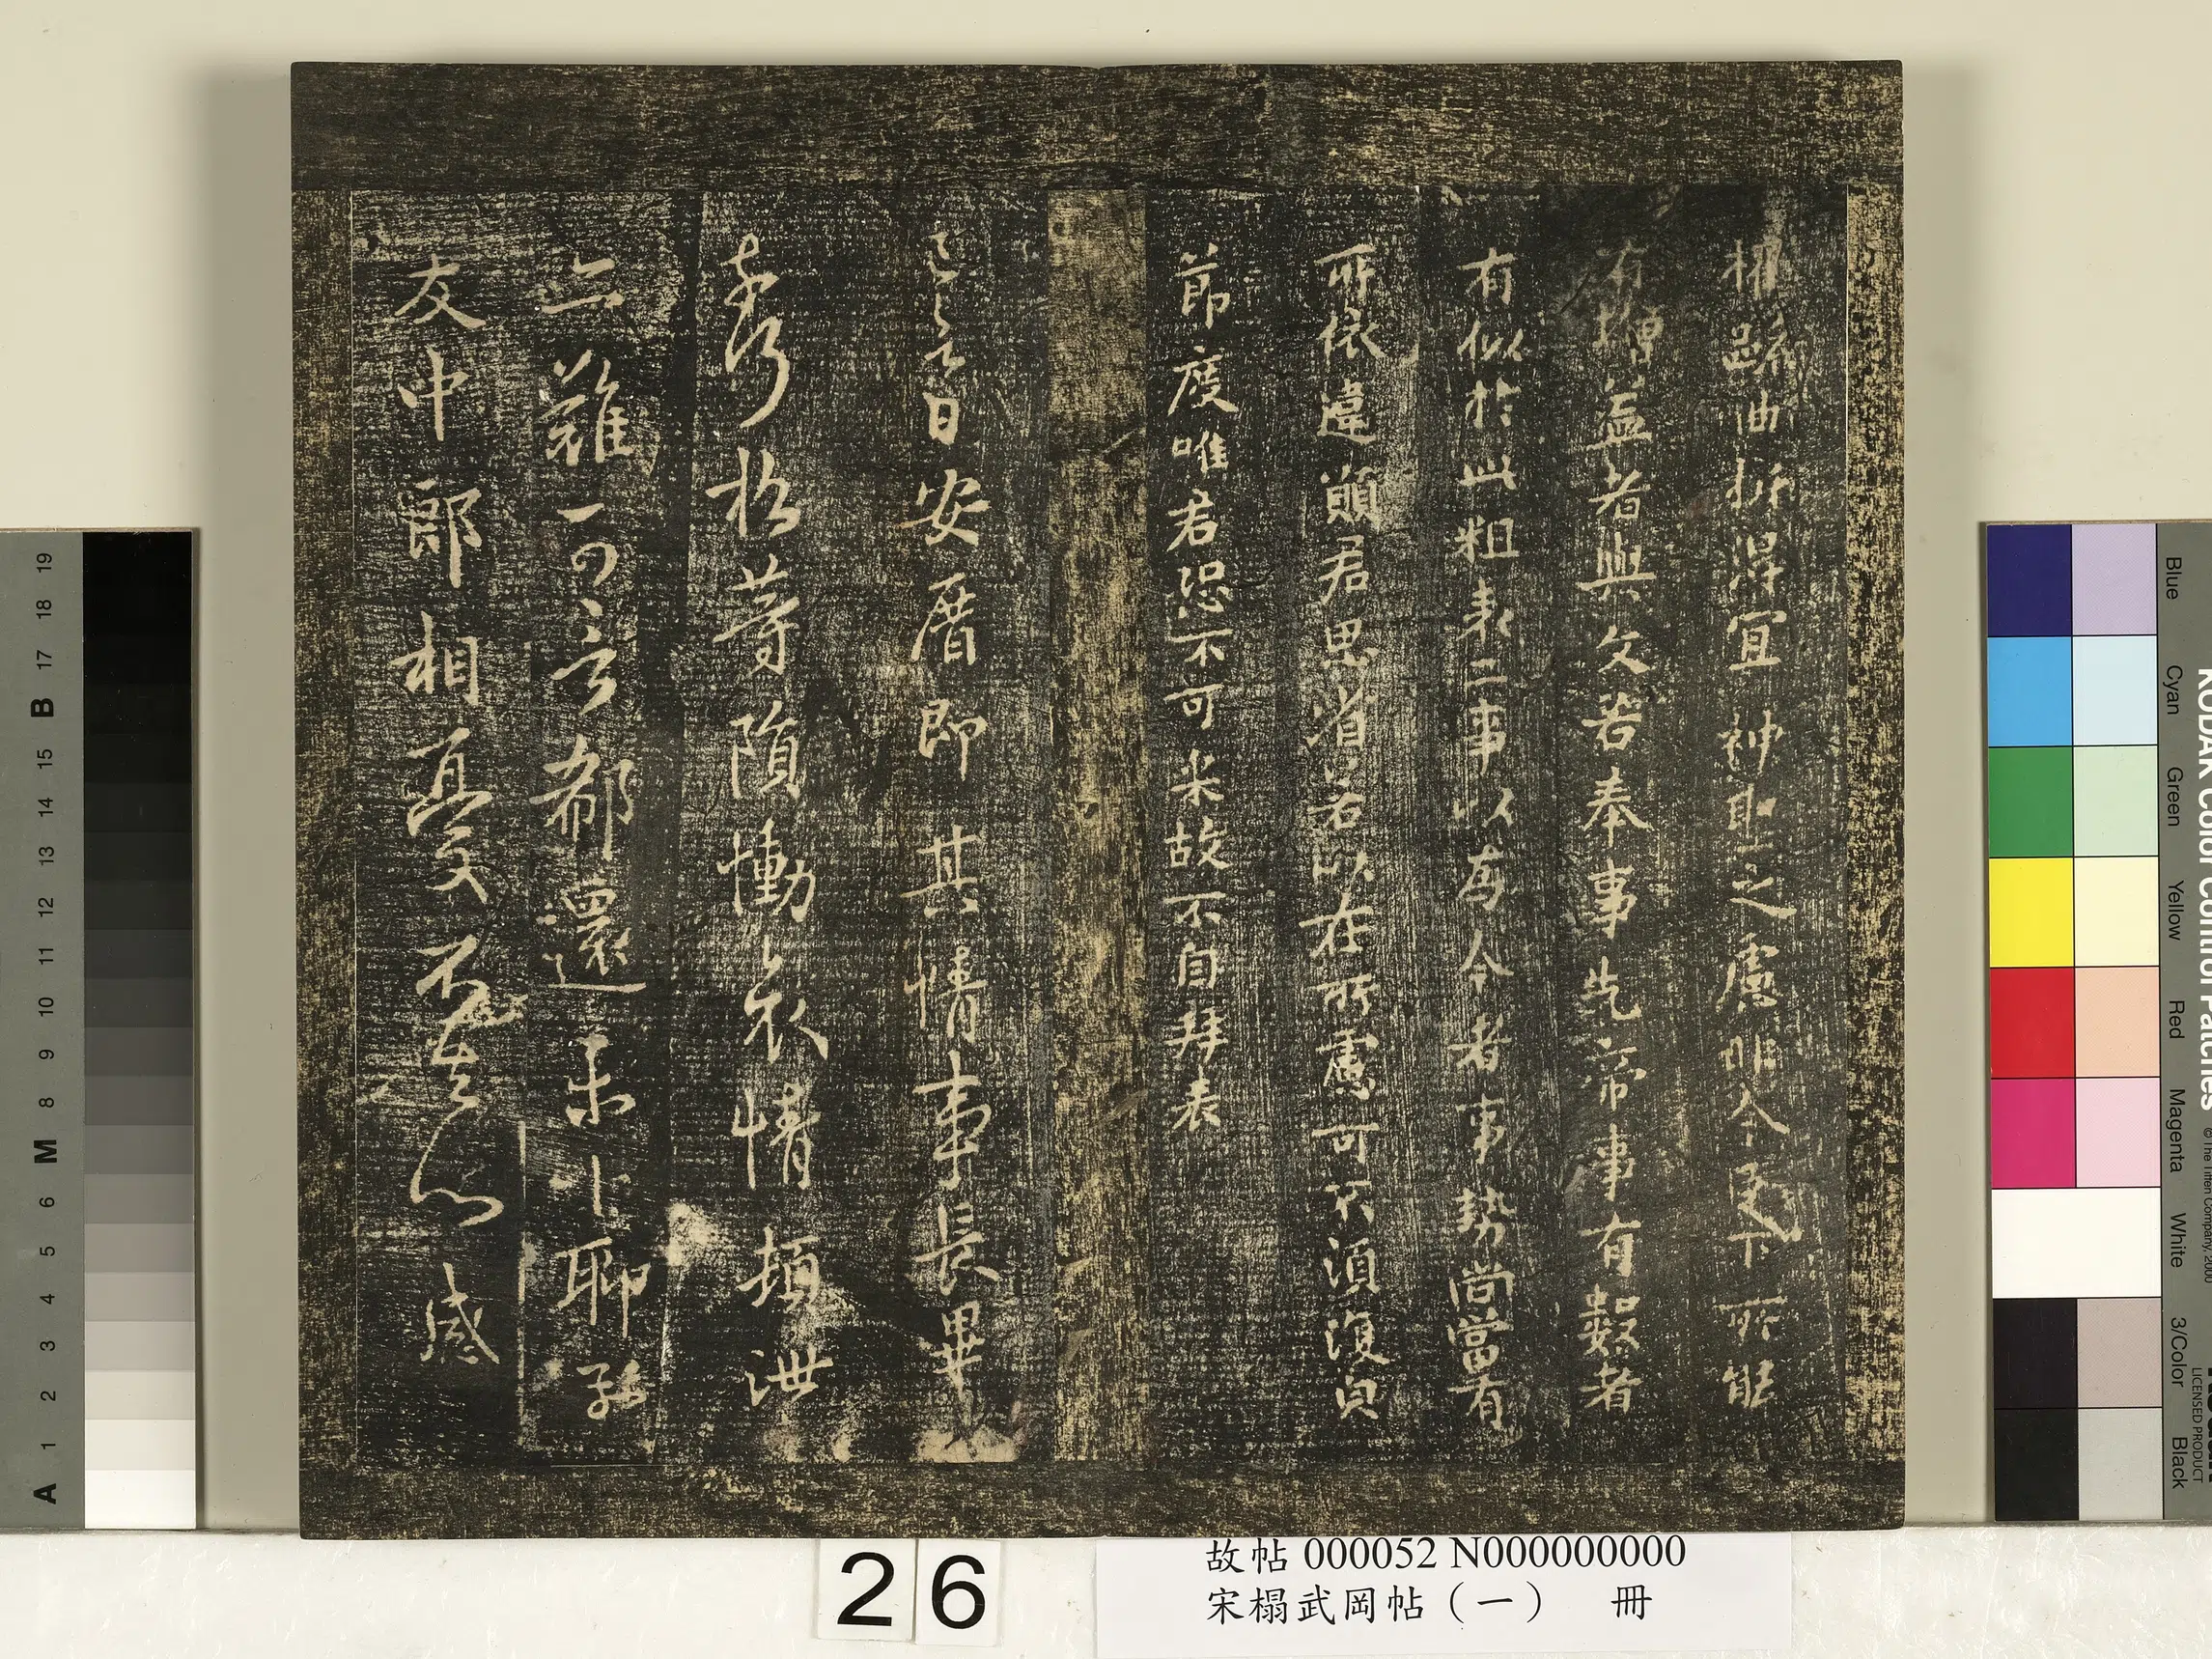 權疏曲折得宜神聖之慮非今臣下所能
有增益者與文若奉事先帝事有數者
有似於此粗表二事以為今者事勢尚當有
所依違願君思省若以在所慮可不須復白
節度唯君恐不可采故不自拜表
昔日安厝即其情事長畢
朗等隕慟哀情頓泄
難可言都還未卜聊示
友中郎相憂不去心感
26
故帖 000052 N000000000
宋榻武岡帖（一） 冊
19
18
17
B
15
14
13
12
11
10
9
8
M
6
5
4
3
2
1
A
KODAK Color Control Patches
© The Tiffen Company, 2000
LICENSED PRODUCT
Blue
Cyan
Green
Yellow
Red
Magenta
White
3/Color
Black